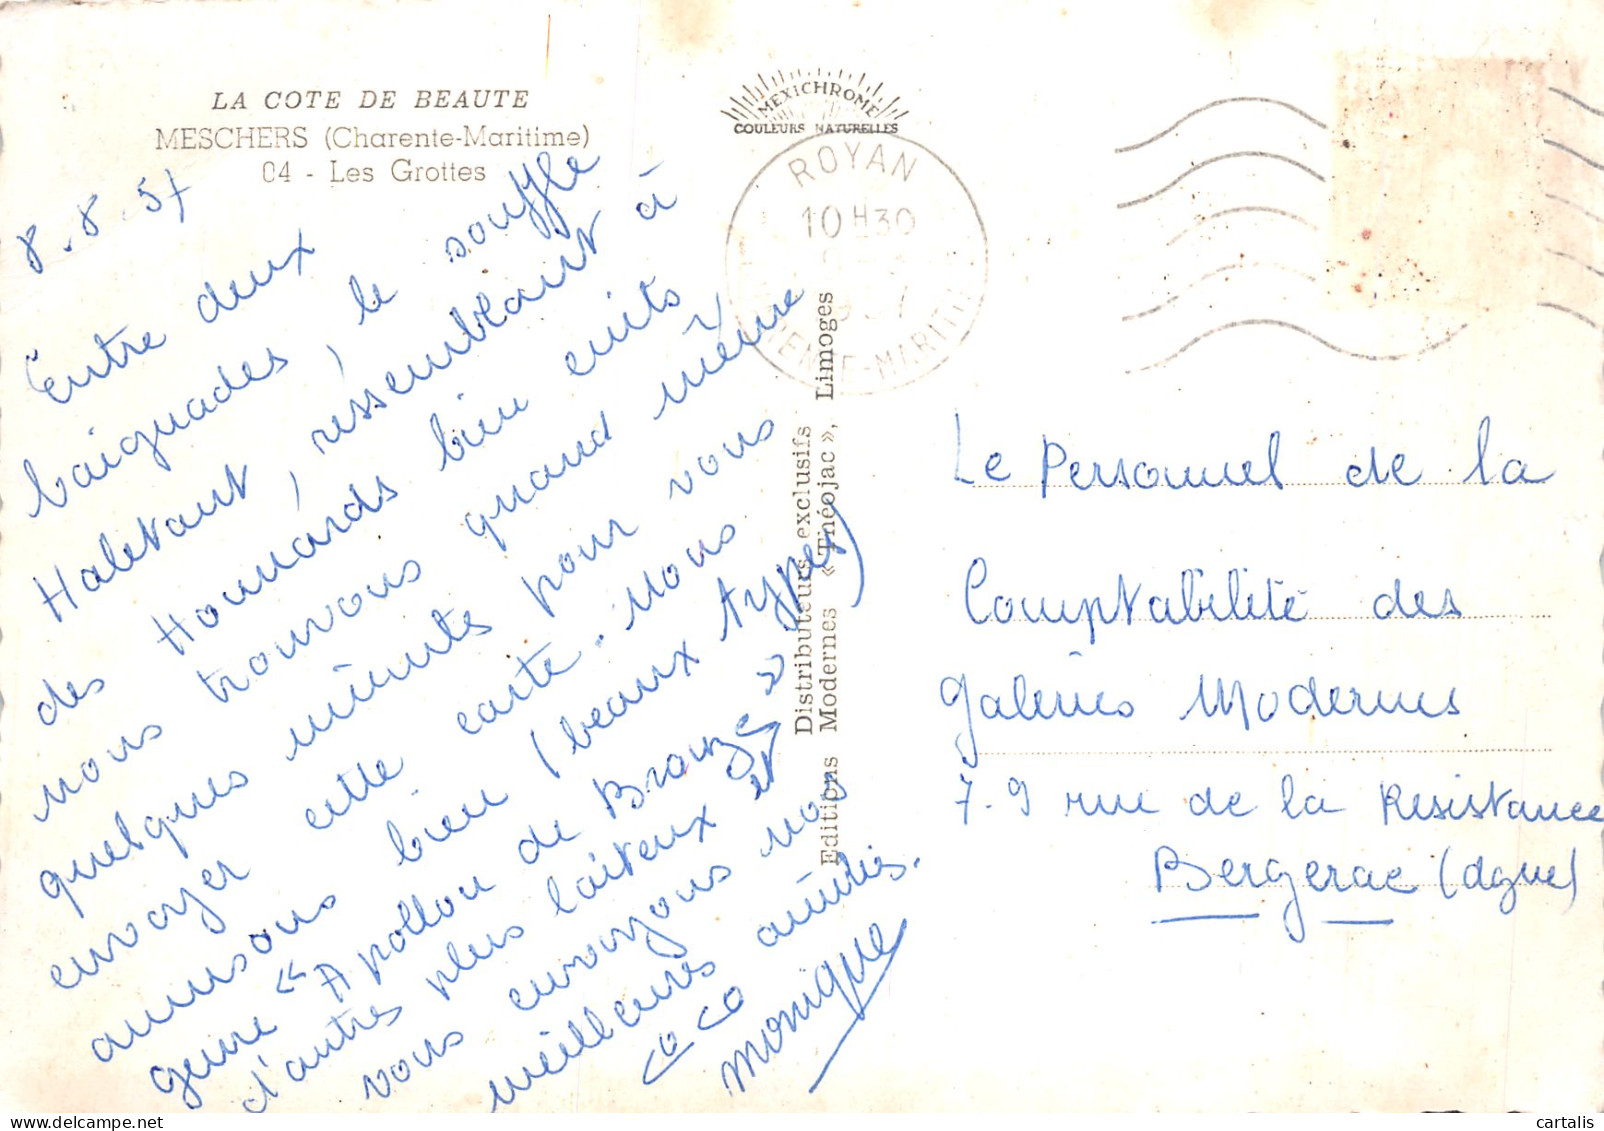 LA COTE DE BEAUTE
MESCHERS (Charente-Maritime)
04 - Les Grottes
8.8.57
Entre deux
baignades, le souffle
Haletant, ressemblant à
des Homards bien cuits
nous trouvons quand même
quelques minutes pour vous
envoyer cette carte. Nous
amusons bien (beaux types)
genre "Apollon de Bronze" et
d'autres plus laiteux
vous envoyons nos
meilleures amitiés.
COCO
Monique
MEXICHROME
COULEURS NATURELLES
ROYAN
10 H 30
1957
CHARENTE-MARITIME
Distributeurs exclusifs
Editions Modernes « Théojac », Limoges
Le Personnel de la
Comptabilité des
Galeries Modernes
7-9 rue de la Resistance
Bergerac (dgne)
cartalis.com